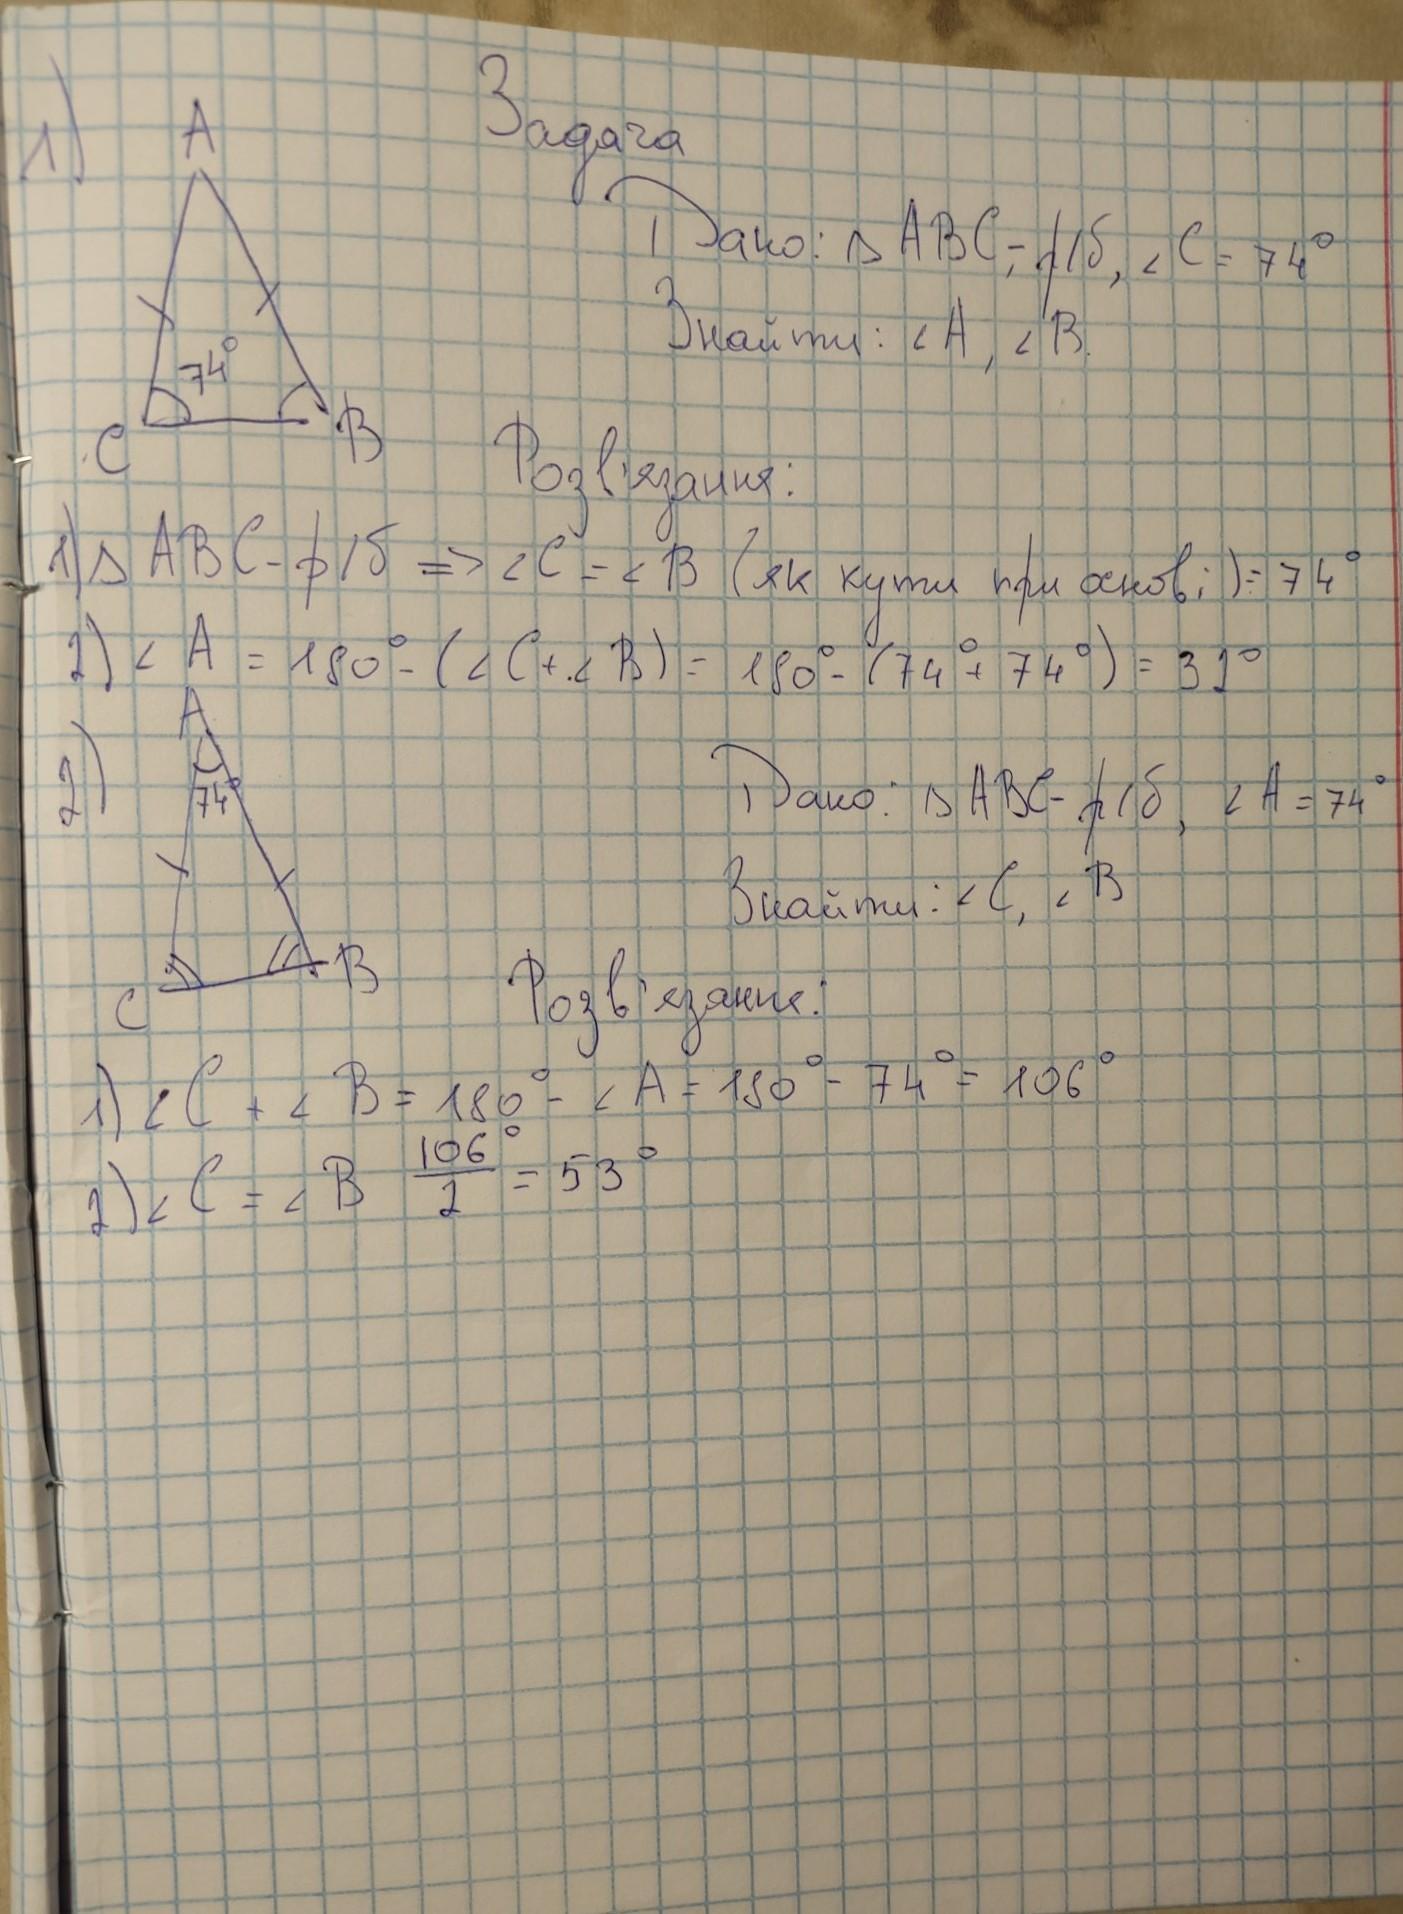 Задача
1)
A
74°
C
B
Дано: △ ABC - р/б, ∠C = 74°
Знайти: ∠A, ∠B.
Розв'язання:
1) △ ABC - р/б => ∠C = ∠B (як кути при основі) = 74°
2) ∠A = 180° - (∠C + ∠B) = 180° - (74° + 74°) = 32°
2)
A
74°
C
B
Дано: △ ABC - р/б, ∠A = 74°
Знайти: ∠C, ∠B
Розв'язання:
1) ∠C + ∠B = 180° - ∠A = 180° - 74° = 106°
2) ∠C = ∠B 106°/2 = 53°